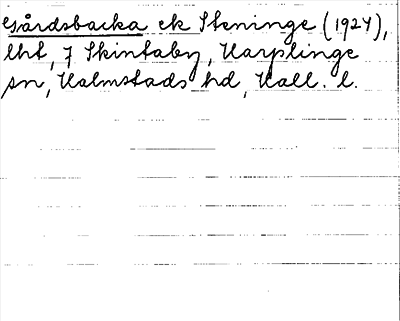 Gårdsbacka ek Steninge (1924),
lht, 7 Skintaby, Harplinge
sn, Halmstads hd, Hall. l.